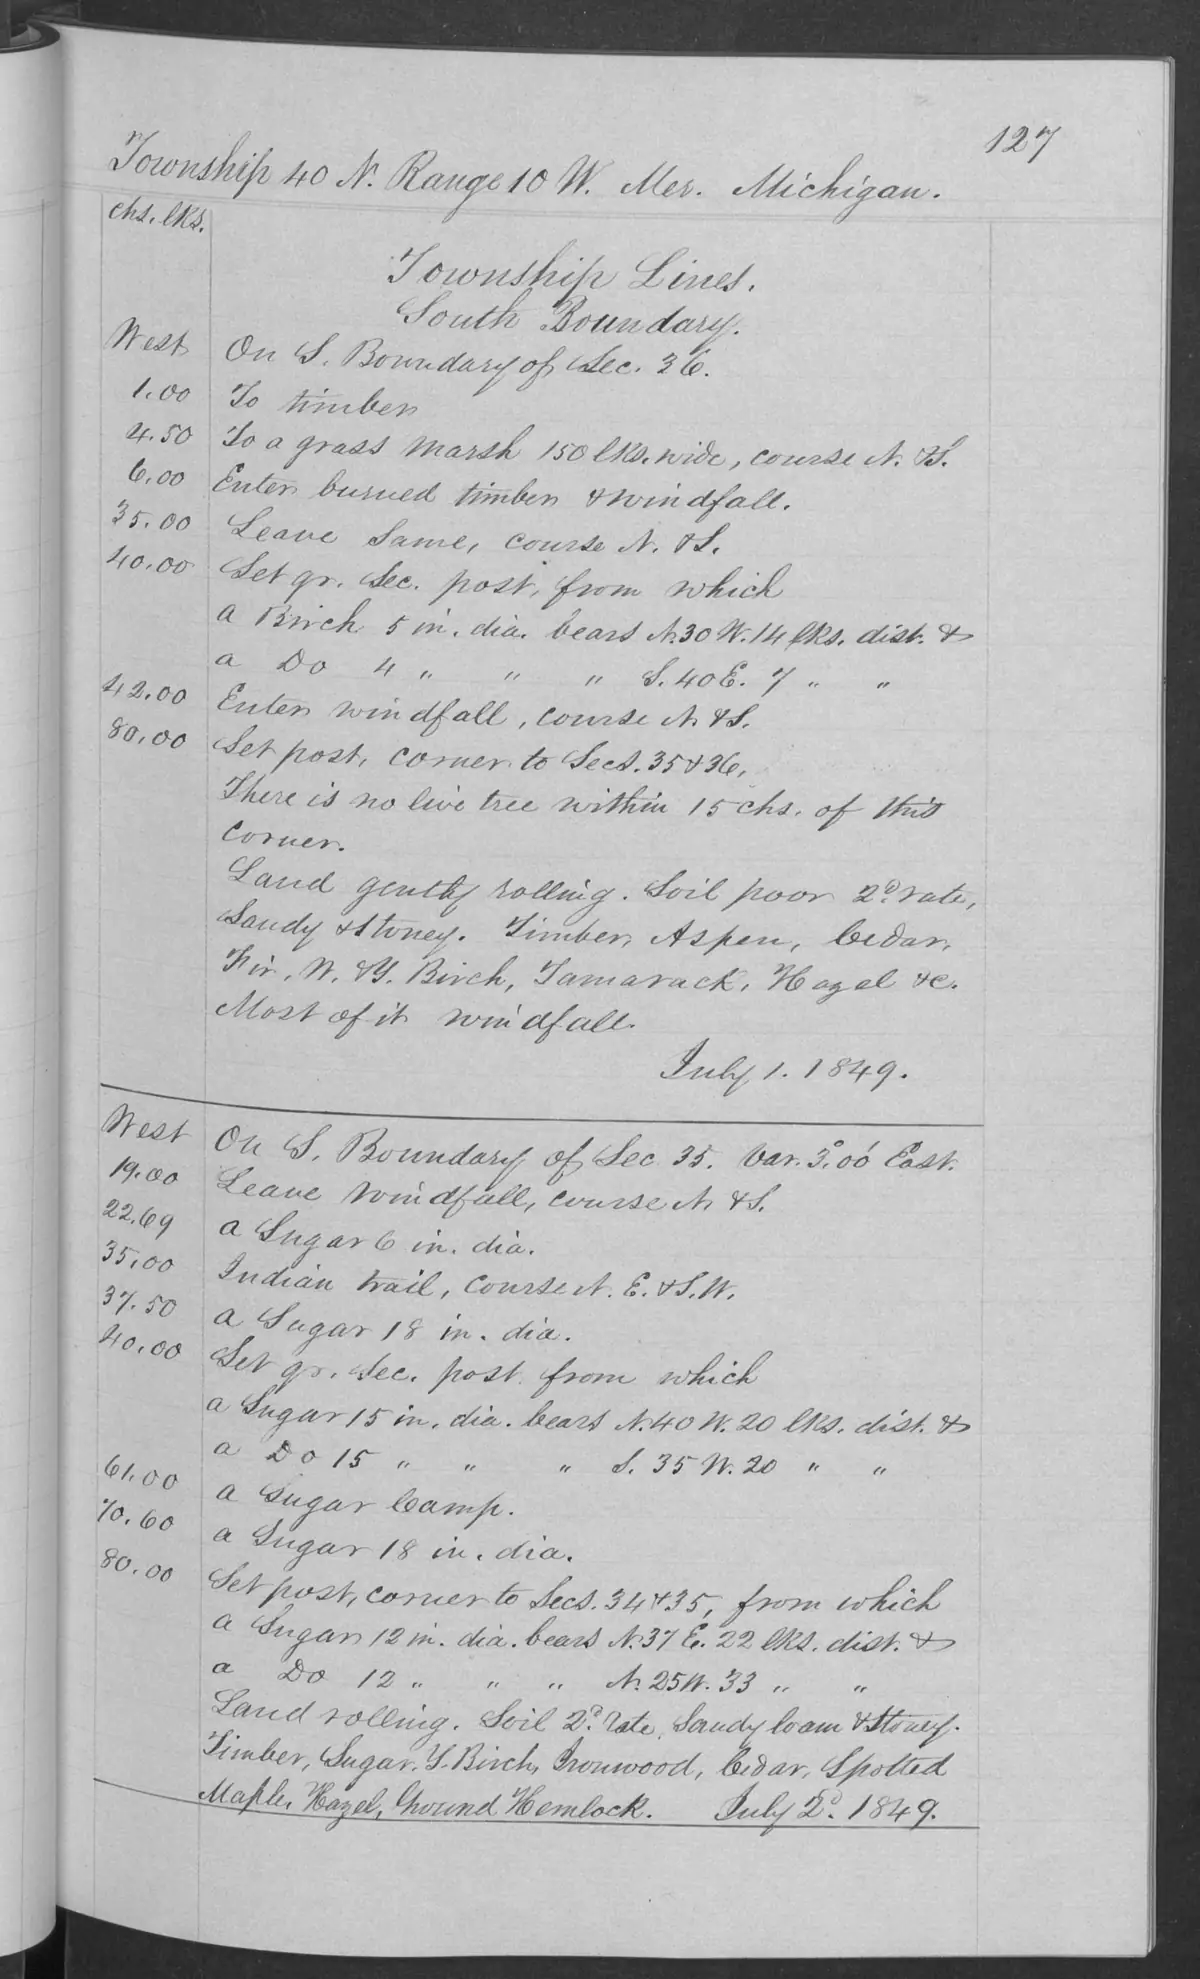 127
Township 40 N. Range 10 W. Mer. Michigan.
chs. lks.
Township Lines.
South Boundary.
West On S. Boundary of Sec. 36.
1.00 To timber
4.50 To a grass marsh 150 lks. wide, course N. & S.
6.00 Enter burned timber & windfall.
35.00 Leave same, course N. & S.
40.00 Set qr. Sec. post, from which
a Birch 5 in. dia. bears N. 30 W. 14 lks. dist. &
a Do 4 " " " S. 40 E. 7 " "
42.00 Enter windfall, course N. & S.
80.00 Set post, corner to Secs. 35 & 36,
There is no live tree within 15 chs. of this
corner.
Land gently rolling. Soil poor 2d. rate,
Sandy & Stoney. Timber, Aspen, Cedar,
Fir, W. & Y. Birch, Tamarack, Hazel &c.
Most of it windfall.
July 1. 1849.
West On S. Boundary of Sec. 35. Var. 3° 00' East.
19.00 Leave windfall, course N. & S.
22.69 a Sugar 6 in. dia.
35.00 Indian trail, course N. E. & S. W.
37.50 a Sugar 18 in. dia.
40.00 Set qr. Sec. post from which
a Sugar 15 in. dia. bears N. 40 W. 20 lks. dist. &
a Do 15 " " " S. 35 W. 20 " "
61.00 a Sugar Camp.
70.60 a Sugar 18 in. dia.
80.00 Set post, corner to Secs. 34 & 35, from which
a Sugar 12 in. dia. bears N. 37 E. 22 lks. dist. &
a Do 12 " " " N. 25 W. 33 " "
Land rolling. Soil 2d. rate, Sandy loam & Stoney.
Timber, Sugar, Y. Birch, Ironwood, Cedar, Spotted
Maple, Hazel, Ground Hemlock. July 2d. 1849.